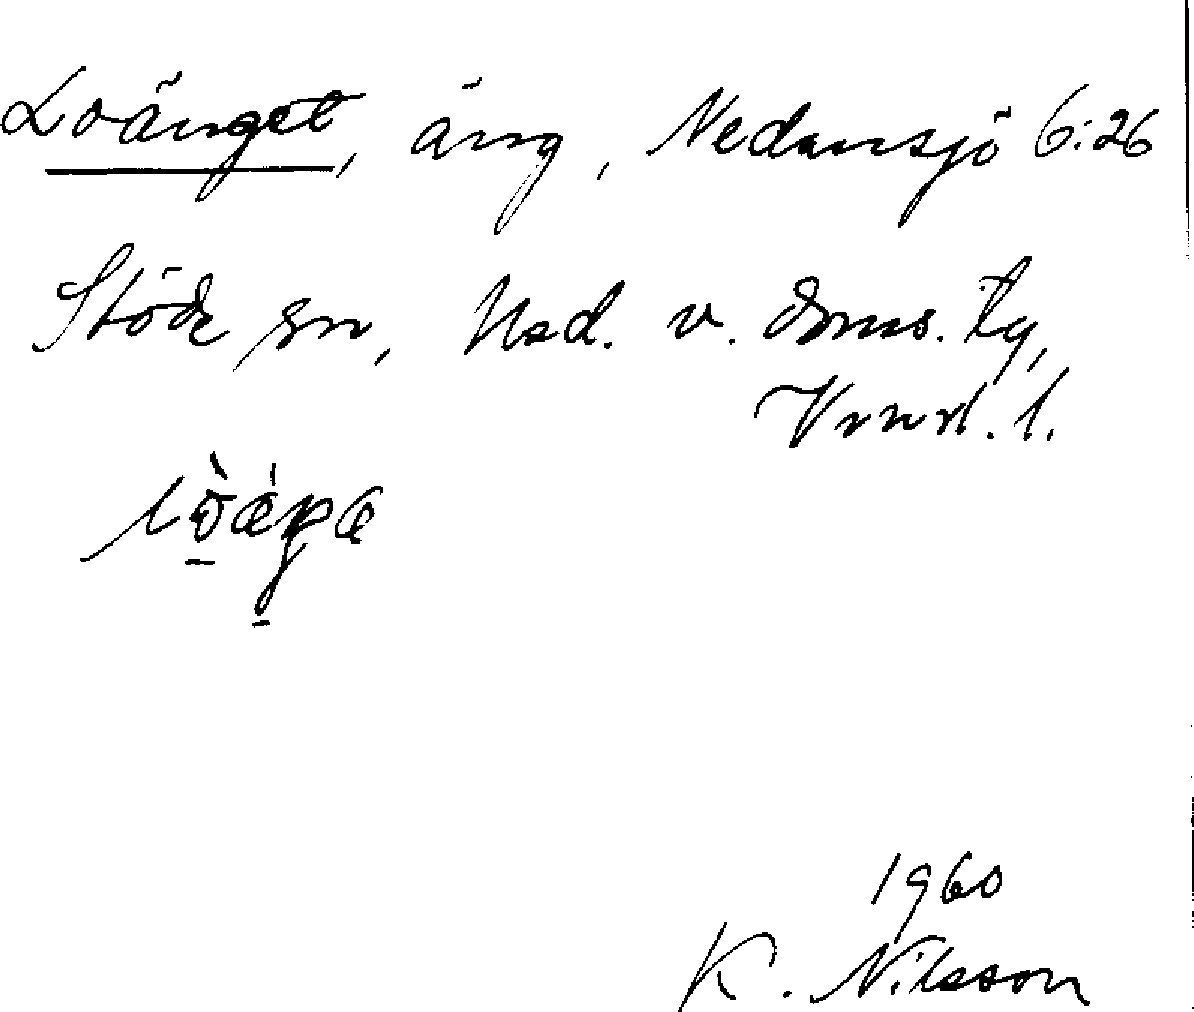 Loänget, äng, Nedansjö 6:26
Stöde sn, Nsd. v. dms. ty,
Vrnrl. l.
1960
K. Nilsson